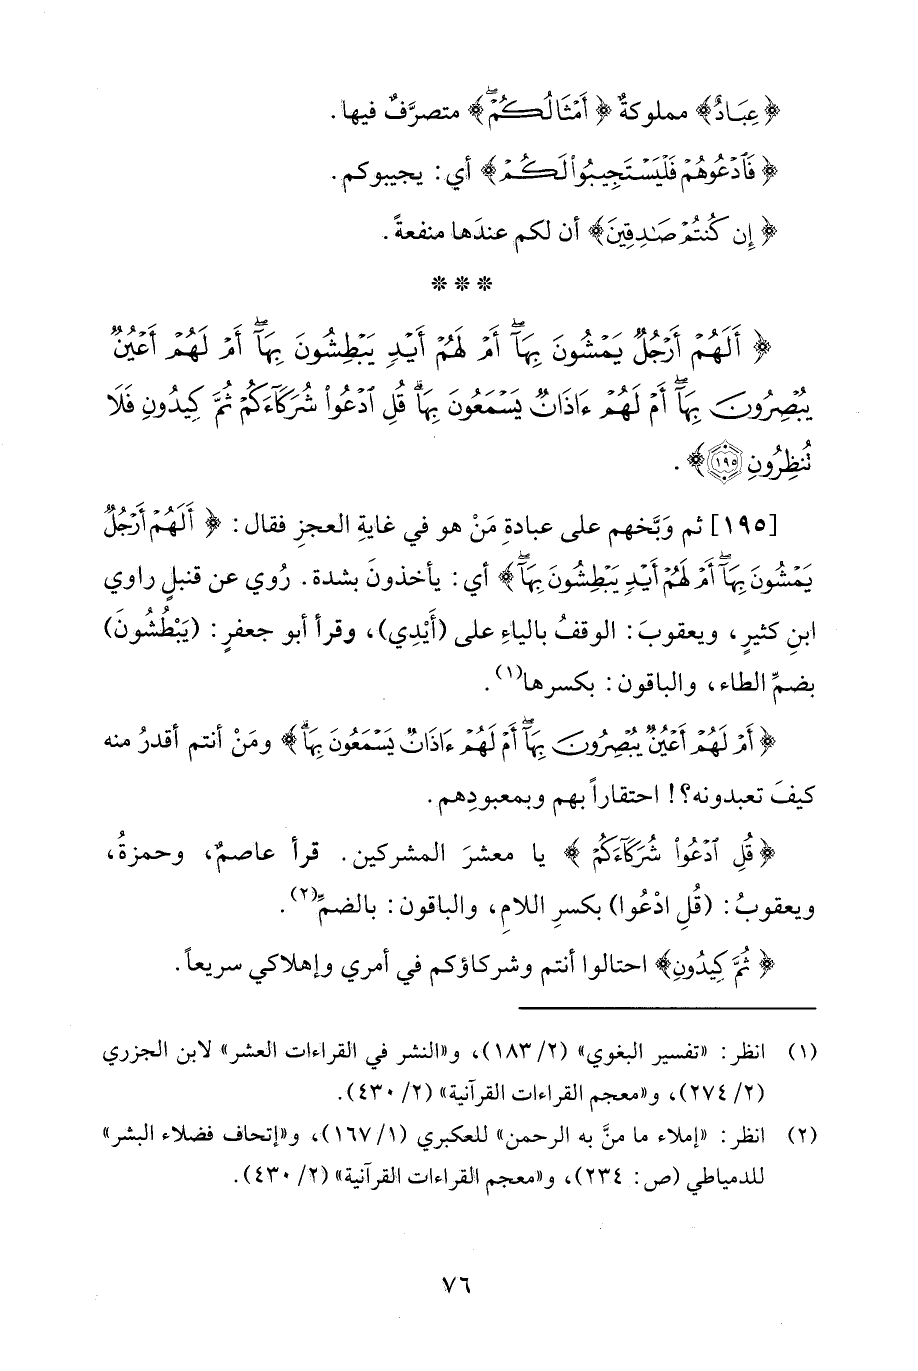 ﴿عِبَادٌ﴾ مملوكةٌ ﴿أَمْثَالُكُمْ﴾ متصرَّفٌ فيها.
﴿فَادْعُوهُمْ فَلْيَسْتَجِيبُوا لَكُمْ﴾ أي: يجيبوكم.
﴿إِن كُنتُمْ صَادِقِينَ﴾ أن لكم عندَها منفعةً.
* * *
﴿أَلَهُمْ أَرْجُلٌ يَمْشُونَ بِهَا أَمْ لَهُمْ أَيْدٍ يَبْطِشُونَ بِهَا أَمْ لَهُمْ أَعْيُنٌ
يُبْصِرُونَ بِهَا أَمْ لَهُمْ ءَاذَانٌ يَسْمَعُونَ بِهَا قُلِ ادْعُوا شُرَكَآءَكُمْ ثُمَّ كِيدُونِ فَلَا
تُنظِرُونِ ١٩٥﴾.
[١٩٥] ثم وَبَّخهم على عبادةِ مَنْ هو في غايةِ العجزِ فقال: ﴿أَلَهُمْ أَرْجُلٌ
يَمْشُونَ بِهَا أَمْ لَهُمْ أَيْدٍ يَبْطِشُونَ بِهَا﴾ أي: يأخذونَ بشدة. رُوي عن قنبلٍ راوي
ابنِ كثيرٍ، ويعقوبَ: الوقفُ بالياءِ على (أَيْدِي)، وقرأ أبو جعفرٍ: (يَبْطُشُونَ)
بضمِّ الطاء، والباقون: بكسرها(١).
﴿أَمْ لَهُمْ أَعْيُنٌ يُبْصِرُونَ بِهَا أَمْ لَهُمْ ءَاذَانٌ يَسْمَعُونَ بِهَا﴾ ومَنْ أنتم أقدرُ منه
كيفَ تعبدونه؟! احتقاراً بهم وبمعبودِهم.
﴿قُلِ ادْعُوا شُرَكَآءَكُمْ﴾ يا معشرَ المشركين. قرأ عاصمٌ، وحمزةُ،
ويعقوبُ: (قُلِ ادْعُوا) بكسرِ اللامِ، والباقون: بالضمِّ(٢).
﴿ثُمَّ كِيدُونِ﴾ احتالوا أنتم وشركاؤكم في أمري وإهلاكي سريعاً.
(١) انظر: «تفسير البغوي» (٢/ ١٨٣)، و«النشر في القراءات العشر» لابن الجزري
(٢/ ٢٧٤)، و«معجم القراءات القرآنية» (٢/ ٤٣٠).
(٢) انظر: «إملاء ما منَّ به الرحمن» للعكبري (١/ ١٦٧)، و«إتحاف فضلاء البشر»
للدمياطي (ص: ٢٣٤)، و«معجم القراءات القرآنية» (٢/ ٤٣٠).
٧٦